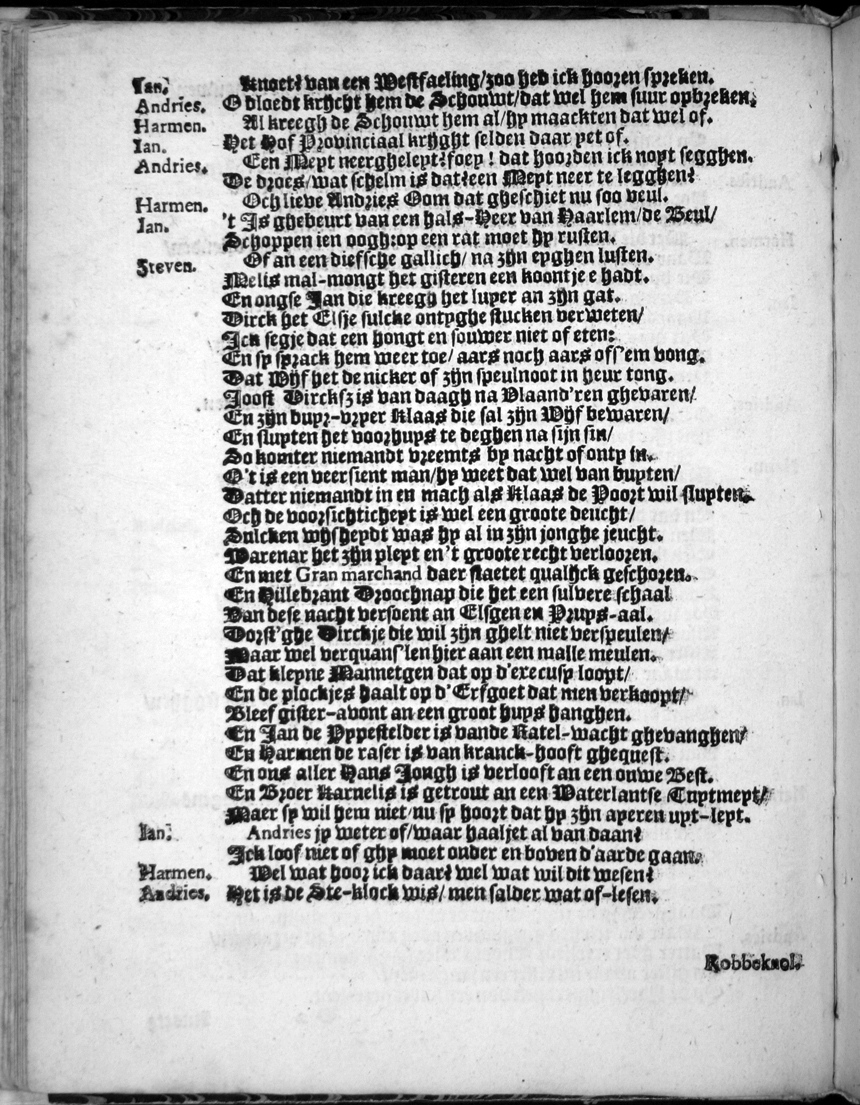 Ian. Knoet? van een Westfaeling/zoo heb ick hooren spreken.
Andries. O bloedt krijcht hem de Schouwt/dat wel hem suur opbreken.
Harmen. Al kreegh de Schouwt hem al/hy maackten dat wel of.
Ian. Het Hof Provinciaal krijght selden daar yet of.
Andries. Een Meyt neergheleyt? foey! dat hoorden ick noyt segghen.
De droes/wat schelm is dat? een Meyt neer te legghen?
Harmen. Och lieve Andries Oom dat gheschiet nu soo veul.
Ian. 't Is ghebeurt van een hals-Heer van Haarlem/de Beul/
Schoppen ien oogh: op een rat moet hy rusten.
Steven. Of an een diefsche gallich/na zijn eyghen lusten.
Melis mal-mongt het gisteren een koontje e hadt.
En ongse Jan die kreegh het luyer an zijn gat.
Dirck het Elsje sulcke ontyghe stucken verweten/
Ick segje dat een hongt en souwer niet of eten:
En sy sprack hem weer toe/aars noch aars ofs'em vong.
Dat Wijf het de nicker of zijn speulnoot in heur tong.
Joost Dircksz is van daagh na Vlaand'ren ghevaren/
En zijn buyr-vryer Klaas die sal zijn Wijf bewaren/
En sluyten het voorhuys te deghen na sijn sin/
So komter niemandt vreemts by nacht of onty in.
O't is een veersient man/hy weet dat wel van buyten/
Datter niemandt in en mach als Klaas de Poort wil sluyten.
Och de voorsichticheyt is wel een groote deucht/
Sulcken wijsheydt was hy al in zijn jonghe jeucht.
Warenar het zijn pleyt en't groote recht verlooren.
En met Gran marchand daer staetet qualijck geschoren.
En Hillebrant Droochnap die het een sulvere schaal
Van dese nacht versoent an Elsgen en Pruys-aal.
Dorst'ghe Dirckje die wil zijn ghelt niet verspeulen/
Maar wel verquans'len hier aan een malle meulen.
Dat kleyne Mannetgen dat op d'execusy loopt/
En de plockjes haalt op d'Erfgoet dat men verkoopt/
Bleef gister-avont an een groot huys hanghen.
En Jan de Pypestelder is vande Ratel-wacht ghevanghen/
En Harmen de raser is van kranck-hooft ghequest.
En ons aller Hans Jongh is verlooft an een ouwe Best.
En Broer Karnelis is getrout an een Waterlantse Tuytmeyt/
Maer sy wil hem niet/nu sy hoort dat hy zijn aperen uyt-leyt.
Ian. Andries jy weter of/waar haaljet al van daan?
Ick loof niet of ghy moet onder en boven d'aarde gaan.
Harmen. Wel wat hoor ick daar? wel wat wil dit wesen?
Andries. Het is de Ste-klock wis/men salder wat of-lesen.
Robbeknol.